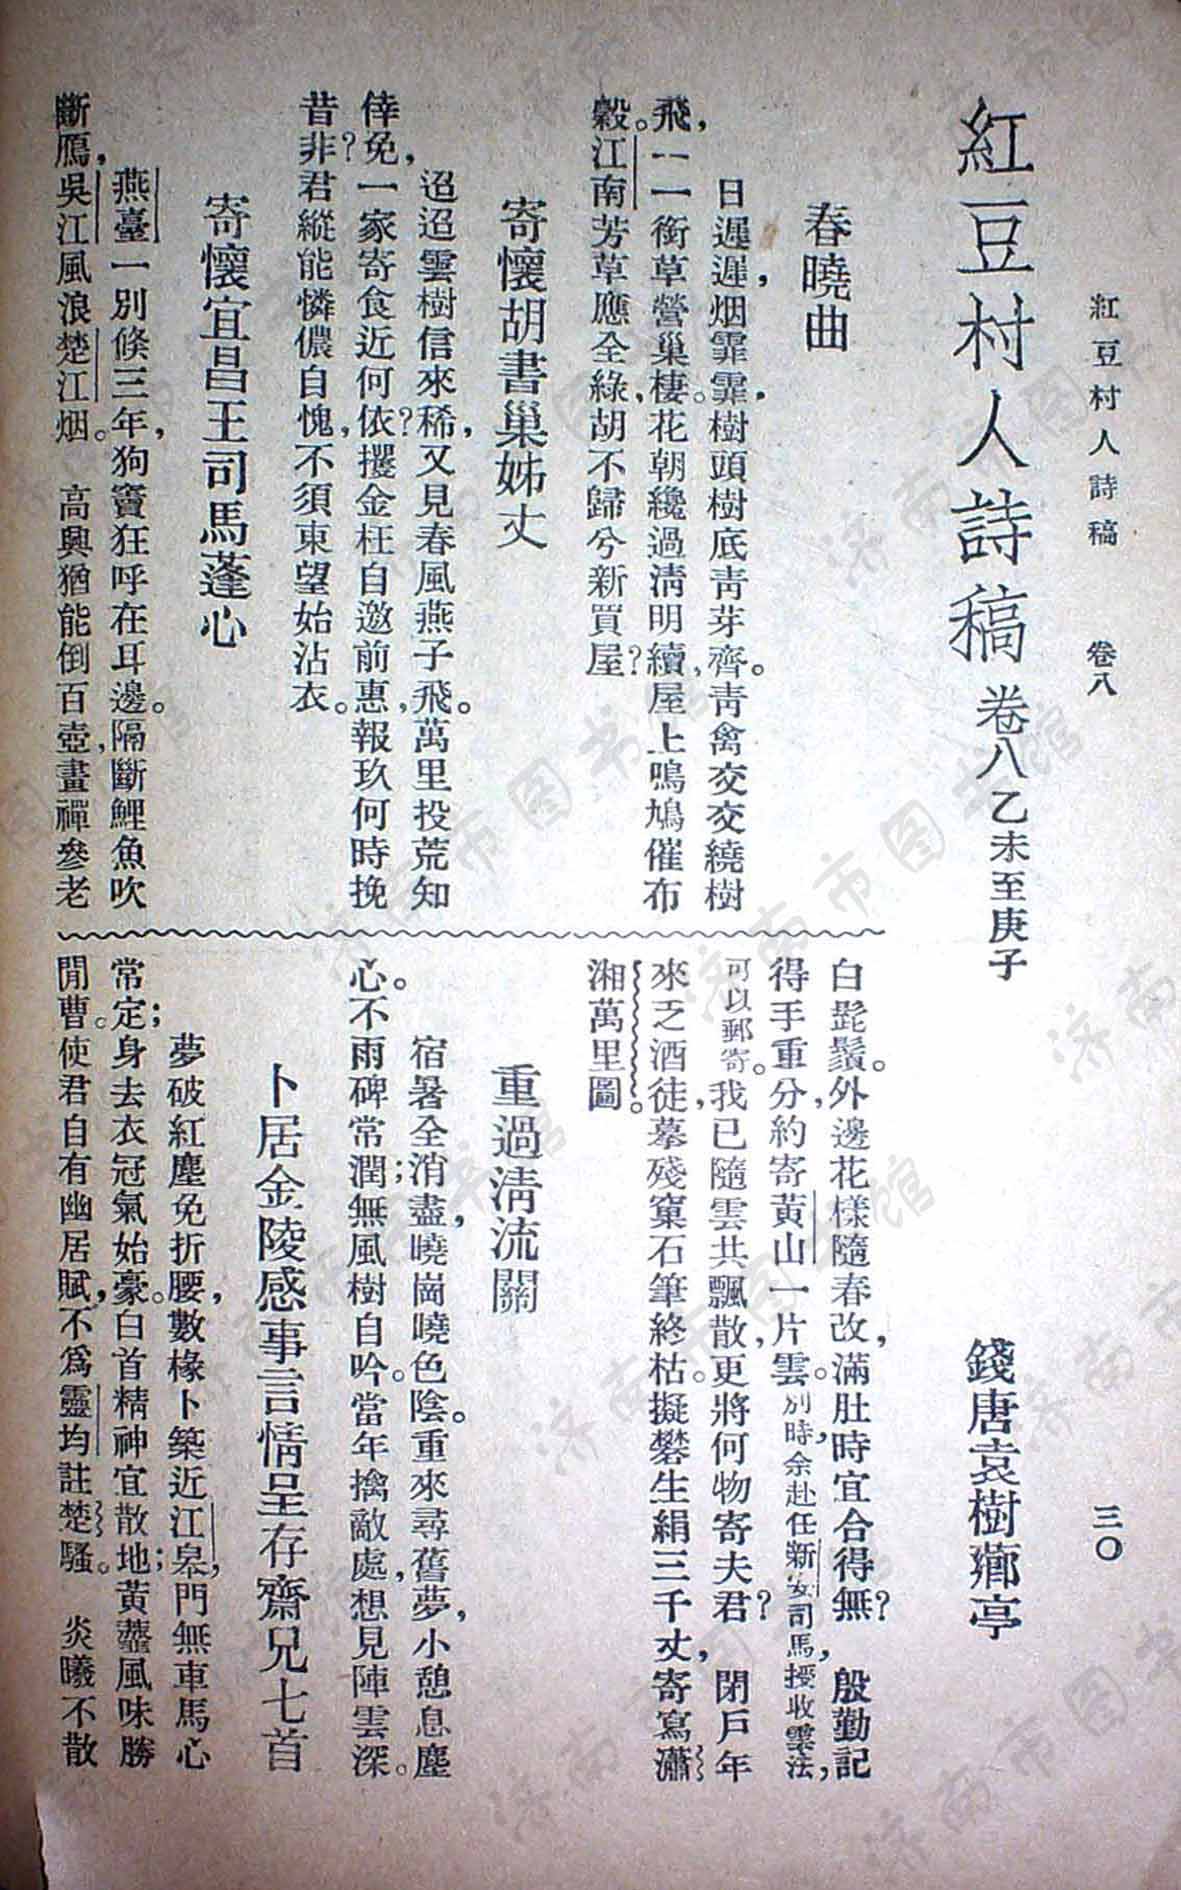 紅豆村人詩稿　卷八　三〇
紅豆村人詩稿 卷八 乙未至庚子
錢唐袁樹薌亭
春曉曲
日遲遲，烟霏霏，樹頭樹底靑芽齊。靑禽交交繞樹
飛，一一銜草營巢棲。花朝纔過淸明續，屋上鳴鳩催布
穀。江南芳草應全綠，胡不歸兮新買屋？
寄懷胡書巢姊丈
迢迢雲樹信來稀，又見春風燕子飛。萬里投荒知
倖免，一家寄食近何依？攫金枉自邀前惠，報玖何時挽
昔非？君縱能憐儂自愧，不須東望始沾衣。
寄懷宜昌王司馬蓬心
燕臺一別倏三年，狗竇狂呼在耳邊。隔斷鯉魚吹
斷鴈，吳江風浪楚江烟。　高興猶能倒百壺，畫禪參老
白髭鬚。外邊花樣隨春改，滿肚時宜合得無？　殷勤記
得手重分，約寄黃山一片雲。別時，余赴任新安司馬授收雲法，
可以郵寄。我已隨雲共飄散，更將何物寄夫君？　閉戶年
來乏酒徒，摹殘窠石筆終枯。擬礬生絹三千丈，寄寫瀟
湘萬里圖。
重過淸流關
宿暑全消盡，曉崗曉色陰。重來尋舊夢，小憩息塵
心。不雨碑常潤；無風樹自吟。當年擒敵處，想見陣雲深。
卜居金陵感事言情呈存齋兄七首
夢破紅塵免折腰，數椽卜築近江皋，門無車馬心
常定；身去衣冠氣始豪。白首精神宜散地；黃虀風味勝
閒曹。使君自有幽居賦，不爲靈均註楚騷。　炎曦不散